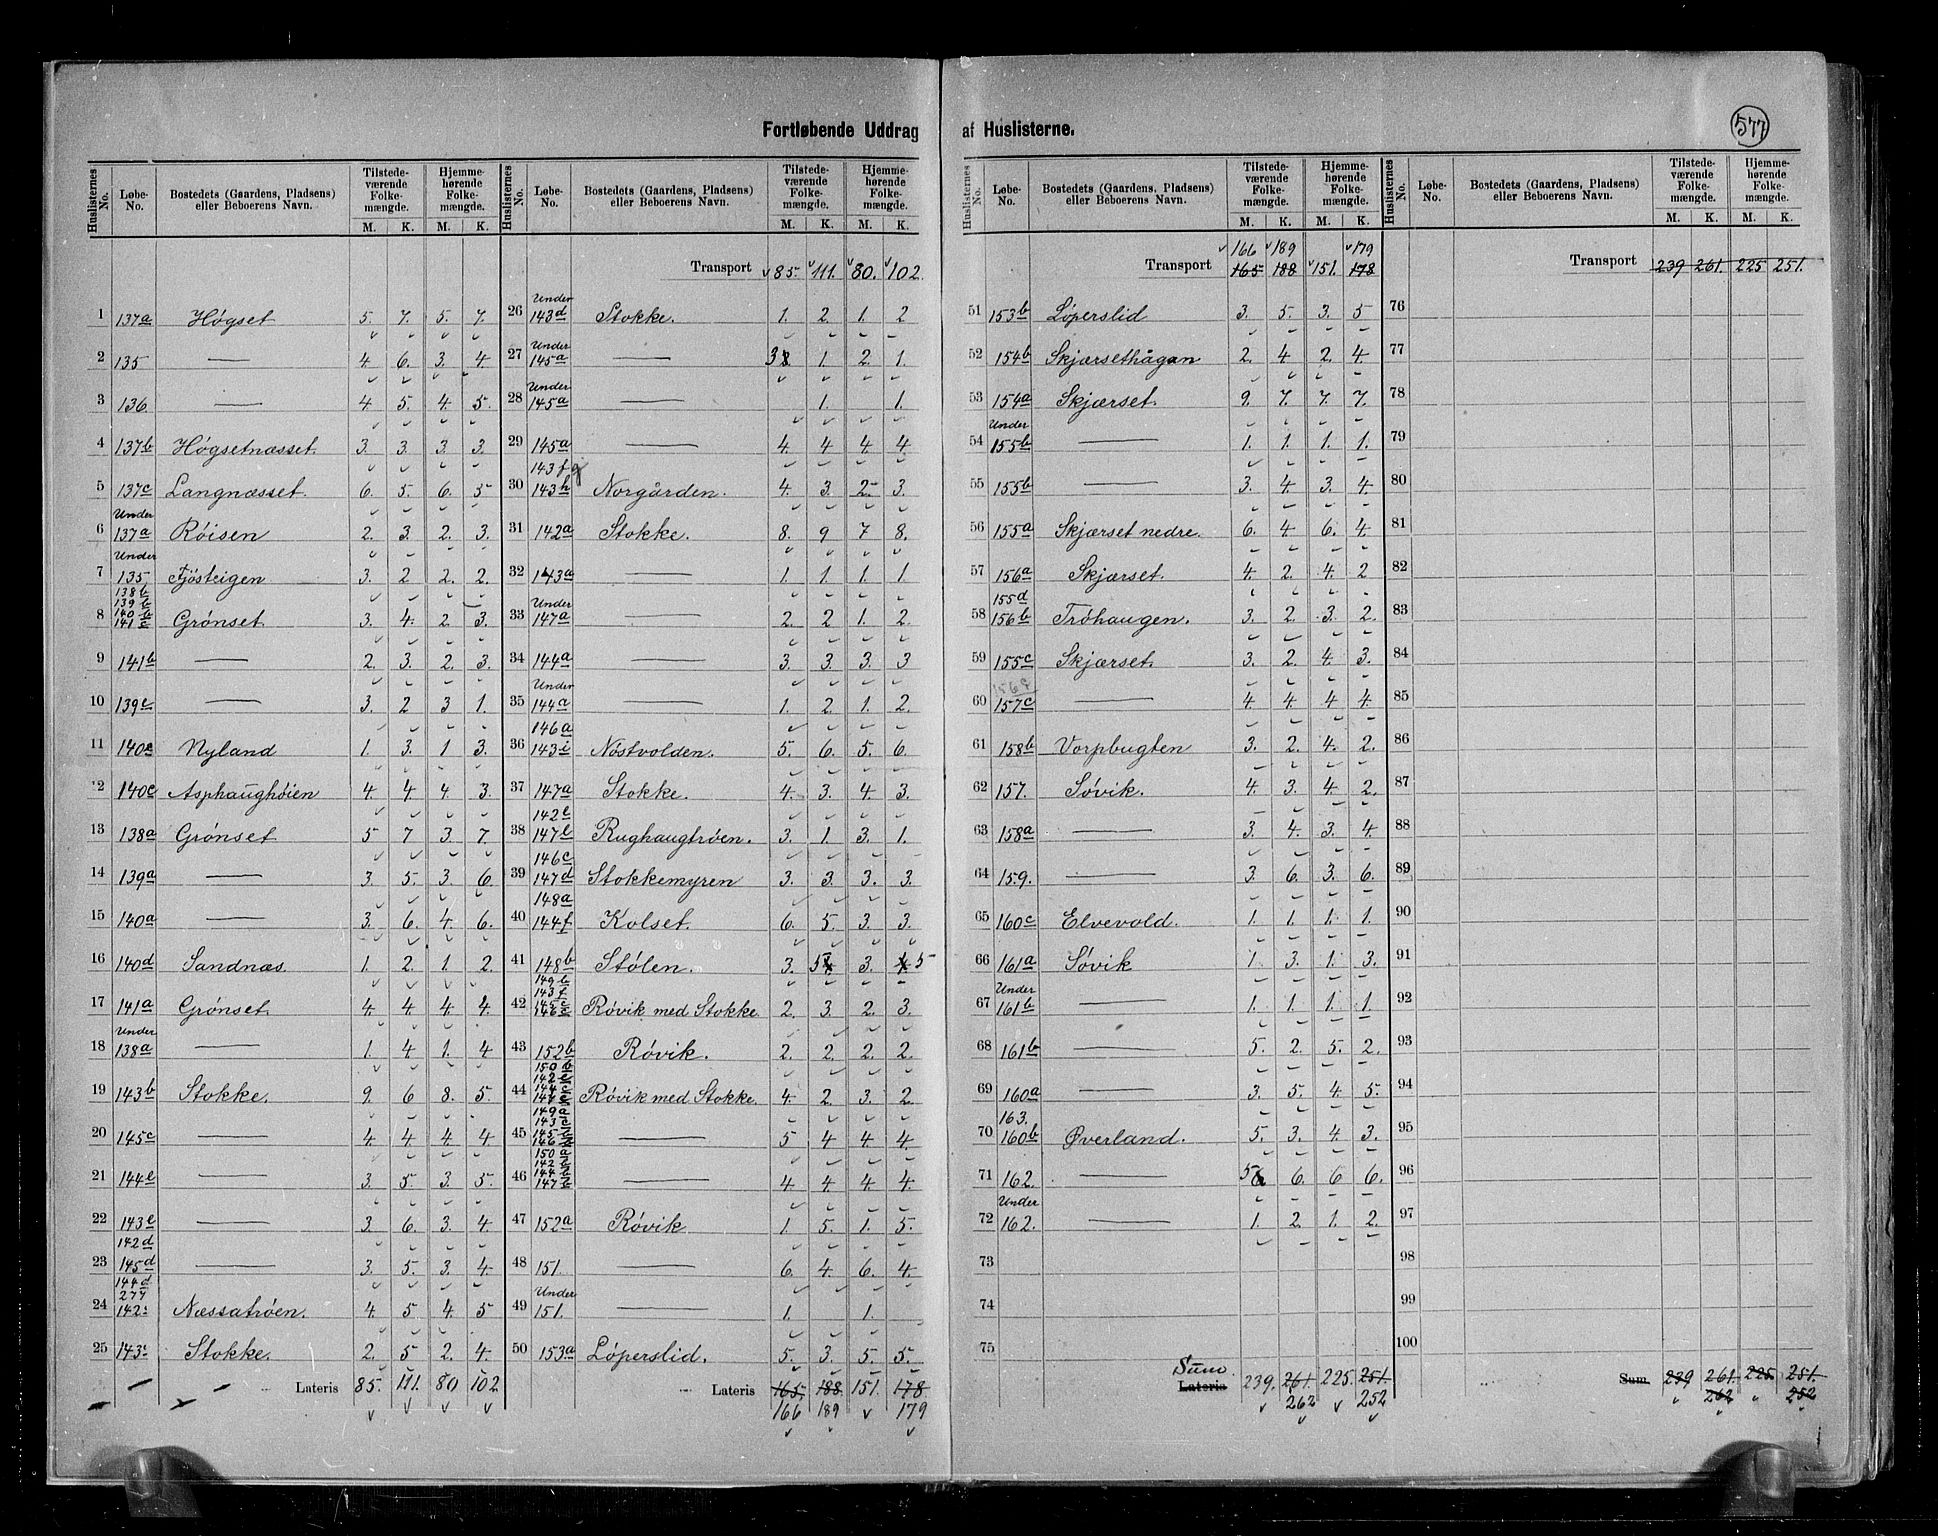 Fortløbende Uddrag af Huslisterne.
577
Huslisternes No. | Løbe-No. | Bostedets (Gaardens, Pladsens) eller Beboerens Navn. | Tilstedeværende Folkemængde. M. K. | Hjemmehørende Folkemængde. M. K.
1 137a Høgset 5. 7. 5. 7.
2 135 — 4. 6. 3. 4.
3 136 — 4. 5. 4. 5.
4 137b Høgsetnæsset. 3. 3. 3. 3.
5 137c Langnæsset. 6. 5. 6. 5
6 Under 137a Røisen 2. 3. 2. 3.
7 Under 135 Fjøsteigen 3. 2 2. 2.
8 138b 139b 140b 141c Grønset. 3. 4. 2 3.
9 141b — 2. 3. 2. 3.
10 139c — 3. 2 3 1.
11 140e Nyland 1. 3. 1 3.
12 140c Asphaughøien 4. 4. 4. 3.
13 138a Grønset 5 7 3. 7.
14 139a — 3. 5. 3. 6
15 140a — 3. 6. 4. 6.
16 140d Sandnæs. 1. 2. 1. 2.
17 141a Grønset. 4. 4. 4. 4.
18 Under 138a — 1. 4 1. 4
19 143b Stokke. 9. 6 8. 5.
20 145c — 4. 4. 4. 4
21 144e — 3. 5. 3. 5.
22 143e — 3 6. 3. 4
23 142d 145d — 3. 5. 3. 4.
24 144d 277 142 Næssatrøen. 4. 5 4. 5
25 143 Stokke. 2. 5 2. 4.
Lateris 85. 111. 80 102.
Transport 85. 111. 80. 102.
26 Under 143d Stokke. 1. 2. 1. 2
27 Under 145a — 3 1. 2. 1.
28 Under 145a — 1. 1.
29 145a — 4. 4 4. 4
30 143f g 143h Norgården. 4. 3. 2 3.
31 142a Stokke. 8. 9 7 8.
32 143a — 1. 1. 1. 1
33 Under 147a — 2. 2 1. 2
34 144a — 3. 3. 3. 3
35 Under 144a — 1. 2. 1. 2.
36 146a 143i Nøstvolden. 5. 6. 5. 6.
37 147a Stokke. 4. 3. 4. 3.
38 142e 147e Rughaugtrøen. 3. 1. 3. 1.
39 146c 147d Stokkemyren 3. 3. 3. 3.
40 148a 144f Kolset. 6. 5. 3. 3.
41 148b Stølen. 3. 5 3. 5
42 149b 143f 145c 146c Røvik med Stokke. 2. 3. 2. 3.
43 152b Røvik. 2. 2. 2. 2.
44 Røvik med Stokke. 4. 2 3. 2
45 — 5 4 4. 4.
46 150a 142b 144b 147b — 4. 4. 4. 4.
47 152a Røvik 1. 5. 1. 5.
48 151. — 6. 4. 6. 4
49 Under 151. — 1. 1.
50 153a Løperslid. 5. 3. 5. 5.
Lateris 165. 188. 151. 178
166 189 179
166 189 179
Transport 165 188 151. 178
51 153b Løperslid 3. 5. 3. 5
52 154b Skjærsethågan 2. 4 2. 4.
53 154a Skjærset. 9. 7. 7. 7.
54 Under 155b — 1. 1. 1. 1.
55 155b — 3. 4. 3. 4.
56 155a Skjærset nedre. 6. 4 6. 4
57 156a Skjærset. 4. 2. 4. 2
58 155d 156b Trøhaugen. 3. 2. 3. 2.
59 155c Skjærset. 3. 2. 4. 3.
60 157c — 4. 4. 4. 4
61 158b Vorpbugten 3. 2. 4. 2.
62 157. Søvik. 4. 3. 4. 2.
63 158a — 3. 4. 3. 4.
64 159. — 3. 6. 3. 6.
65 160c Elvevold. 1. 1. 1. 1.
66 161a Søvik 1 3. 1. 3.
67 Under 161b — 1. 1. 1. 1.
68 161b — 5. 2. 5. 2.
69 160a — 3. 5. 4 5.
70 163. 160b Øverland. 5. 3. 4. 3.
71 162. — 5 6. 6 6.
72 Under 162. — 1. 2. 1. 2.
73
74
75
Sum
Lateris 239. 261. 225. 251.
262 252
Transport 239 261. 225 251.
76
77
78
79
80
81
82
83
84
85
86
87
88
89
90
91
92
93
94
95
96
97
98
99
100
Sum. 239 261. 225. 251.
262 252